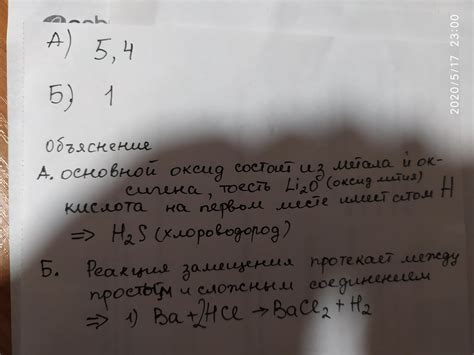 А) 5,4
Б) 1
Объяснение
А. основной оксид состоит из метала и ок-
сигена, тоесть Li₂O (оксид лития)
кислота на первом месте имеет атом H
⇒ H₂S (хлороводород)
Б. Реакция замещения протекает между
простым и сложным соединением
⇒ 1) Ba + 2HCl → BaCl₂ + H₂
2020/5/17 23:00